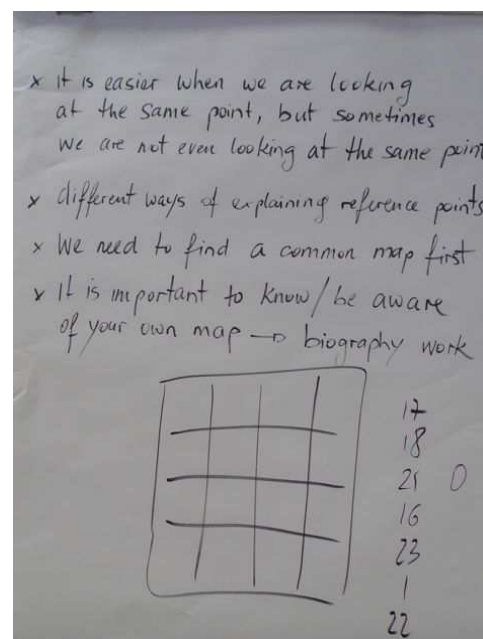 x It is easier when we are looking
at the same point, but sometimes
we are not even looking at the same point
x different ways of explaining reference points
x We need to find a common map first
x It is important to know/be aware
of your own map → biography work
17
18
21 0
16
23
1
22